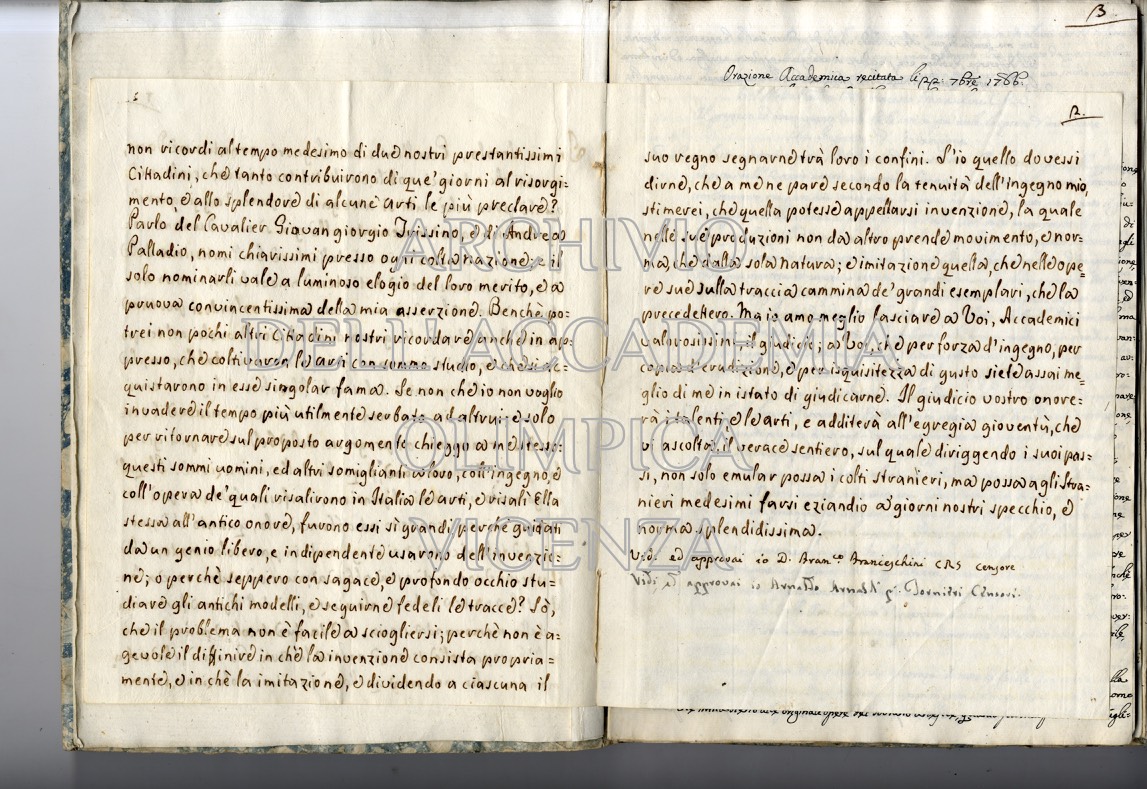 non ricordi al tempo medesimo di due nostri prestantissimi
Cittadini, che tanto contribuirono di que' giorni al risorgi=
mento, e allo splendore di alcune Arti le più preclare?
Parlo del Cavalier Giovangiorgio Trissino, e di Andrea
Palladio, nomi chiarissimi presso ogni colta nazione; e il
solo nominarli vale a luminoso elogio del loro merito, e a
pruova convincentissima della mia asserzione. Benchè po=
trei non pochi altri Cittadini nostri ricordare anche in ap=
presso, che coltivaron le arti con sommo studio, e che si ac=
quistarono in esse singolar fama. Se non che io non voglio
invadere il tempo più utilmente serbato ad altrui; e solo
per ritornare sul proposto argomento chieggo a me stesso:
questi sommi uomini, ed altri somiglianti a loro, coll'ingegno, e
coll'opera de' quali risalirono in Italia le arti, e risalì Ella
stessa all'antico onore, furono essi sì grandi perchè guidati
da un genio libero, e indipendente usarono dell'invenzio=
ne; o perchè seppero con sagace, e profondo occhio stu=
diare gli antichi modelli, e seguirne fedeli le tracce? Sò,
che il problema non è facile a sciogliersi; perchè non è a=
gevole il diffinire in chè la invenzione consista propria=
mente, e in chè la imitazione, e dividendo a ciascuna il
B
Orazione Accademica recitata li 22: 7bre 1786.
2.
suo regno segnarne trà loro i confini. S'io quello dovessi
dirne, che a me ne pare secondo la tenuità dell'ingegno mio,
stimerei, che quella potesse appellarsi invenzione, la quale
nelle sue produzioni non da altro prende movimento, e nor=
ma, che dalla sola natura; e imitazione quella, che nelle ope=
re sue sulla traccia cammina de' grandi esemplari, che la
precedettero. Ma io amo meglio lasciare a Voi, Accademici
valorosissimi, il giudicio; a Voi, che per forza d'ingegno, per
copia d'erudizione, e per isquisitezza di gusto siete assai me=
glio di me in istato di giudicarne. Il giudicio vostro onore=
rà i talenti e le arti, e additerà all'egregia gioventù, che
vi ascolta, il verace sentiero, sul quale diriggendo i suoi pas=
si, non solo emular possa i colti stranieri, ma possa agli stra=
nieri medesimi farsi eziandio a' giorni nostri specchio, e
norma splendidissima.
Vidi ed approvai io D. Fran.co Franceschini CRS censore
Vidi ed approvai io Arnaldo Arnaldi Censori
ARCHIVIO
DELL'ACCADEMIA
OLIMPICA
VICENZA